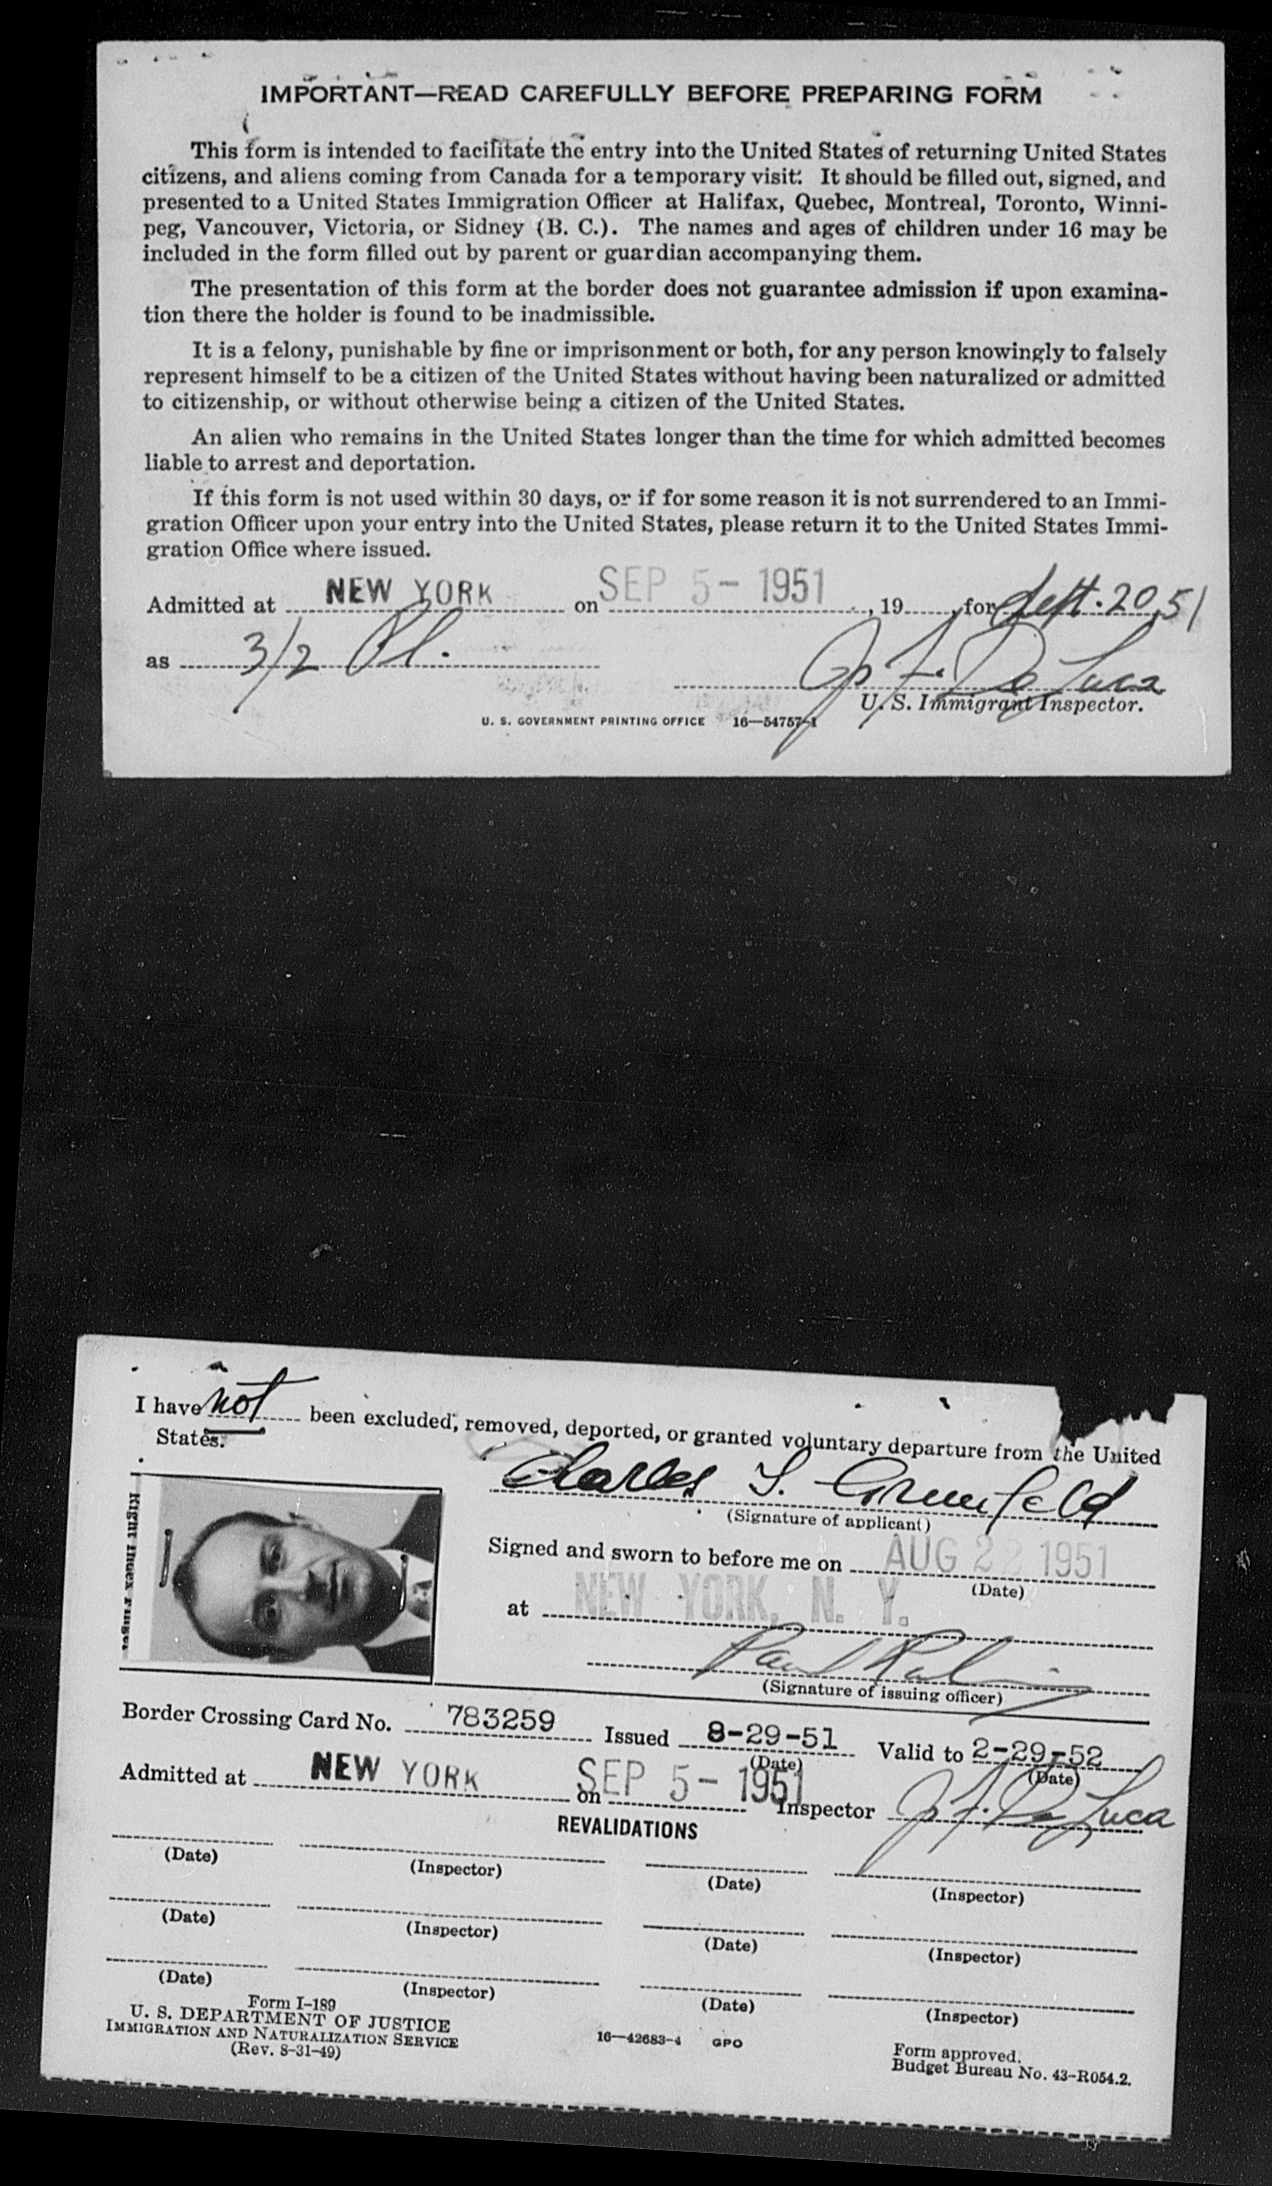 IMPORTANT—READ CAREFULLY BEFORE PREPARING FORM
This form is intended to facilitate the entry into the United States of returning United States
citizens, and aliens coming from Canada for a temporary visit. It should be filled out, signed, and
presented to a United States Immigration Officer at Halifax, Quebec, Montreal, Toronto, Winni-
peg, Vancouver, Victoria, or Sidney (B. C.). The names and ages of children under 16 may be
included in the form filled out by parent or guardian accompanying them.
The presentation of this form at the border does not guarantee admission if upon examina-
tion there the holder is found to be inadmissible.
It is a felony, punishable by fine or imprisonment or both, for any person knowingly to falsely
represent himself to be a citizen of the United States without having been naturalized or admitted
to citizenship, or without otherwise being a citizen of the United States.
An alien who remains in the United States longer than the time for which admitted becomes
liable to arrest and deportation.
If this form is not used within 30 days, or if for some reason it is not surrendered to an Immi-
gration Officer upon your entry into the United States, please return it to the United States Immi-
gration Office where issued.
Admitted at NEW YORK on SEP 5 - 1951, 19, for Sept. 20, 51
as 3/2
F. De Luca
U. S. Immigrant Inspector.
U. S. GOVERNMENT PRINTING OFFICE 16—54757-1
I have not been excluded, removed, deported, or granted voluntary departure from the United
States.
Right Index Finger
Charles S. Grunfeld
(Signature of applicant)
Signed and sworn to before me on AUG 22 1951
(Date)
at NEW YORK, N. Y.
Paul
(Signature of issuing officer)
Border Crossing Card No. 783259 Issued 8-29-51 Valid to 2-29-52
(Date) (Date)
Admitted at NEW YORK on SEP 5 - 1951 Inspector F. De Luca
REVALIDATIONS
(Date) (Inspector) (Date) (Inspector)
(Date) (Inspector) (Date) (Inspector)
(Date) (Inspector) (Date) (Inspector)
Form I-189
U. S. DEPARTMENT OF JUSTICE
IMMIGRATION AND NATURALIZATION SERVICE
(Rev. 8-31-49)
16—42683-4 GPO
Form approved.
Budget Bureau No. 43-R054.2.